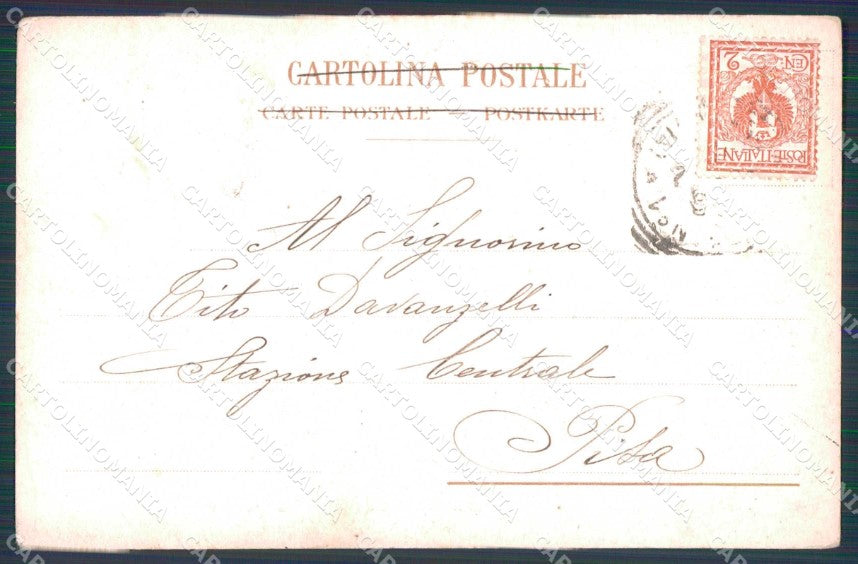 CARTOLINA POSTALE
CARTE POSTALE — POSTKARTE
POSTE ITALIANE
CEN 2
Al Signorino
Tito Davanzelli
Stazione Centrale
Pisa
CARTOLINOMANIA